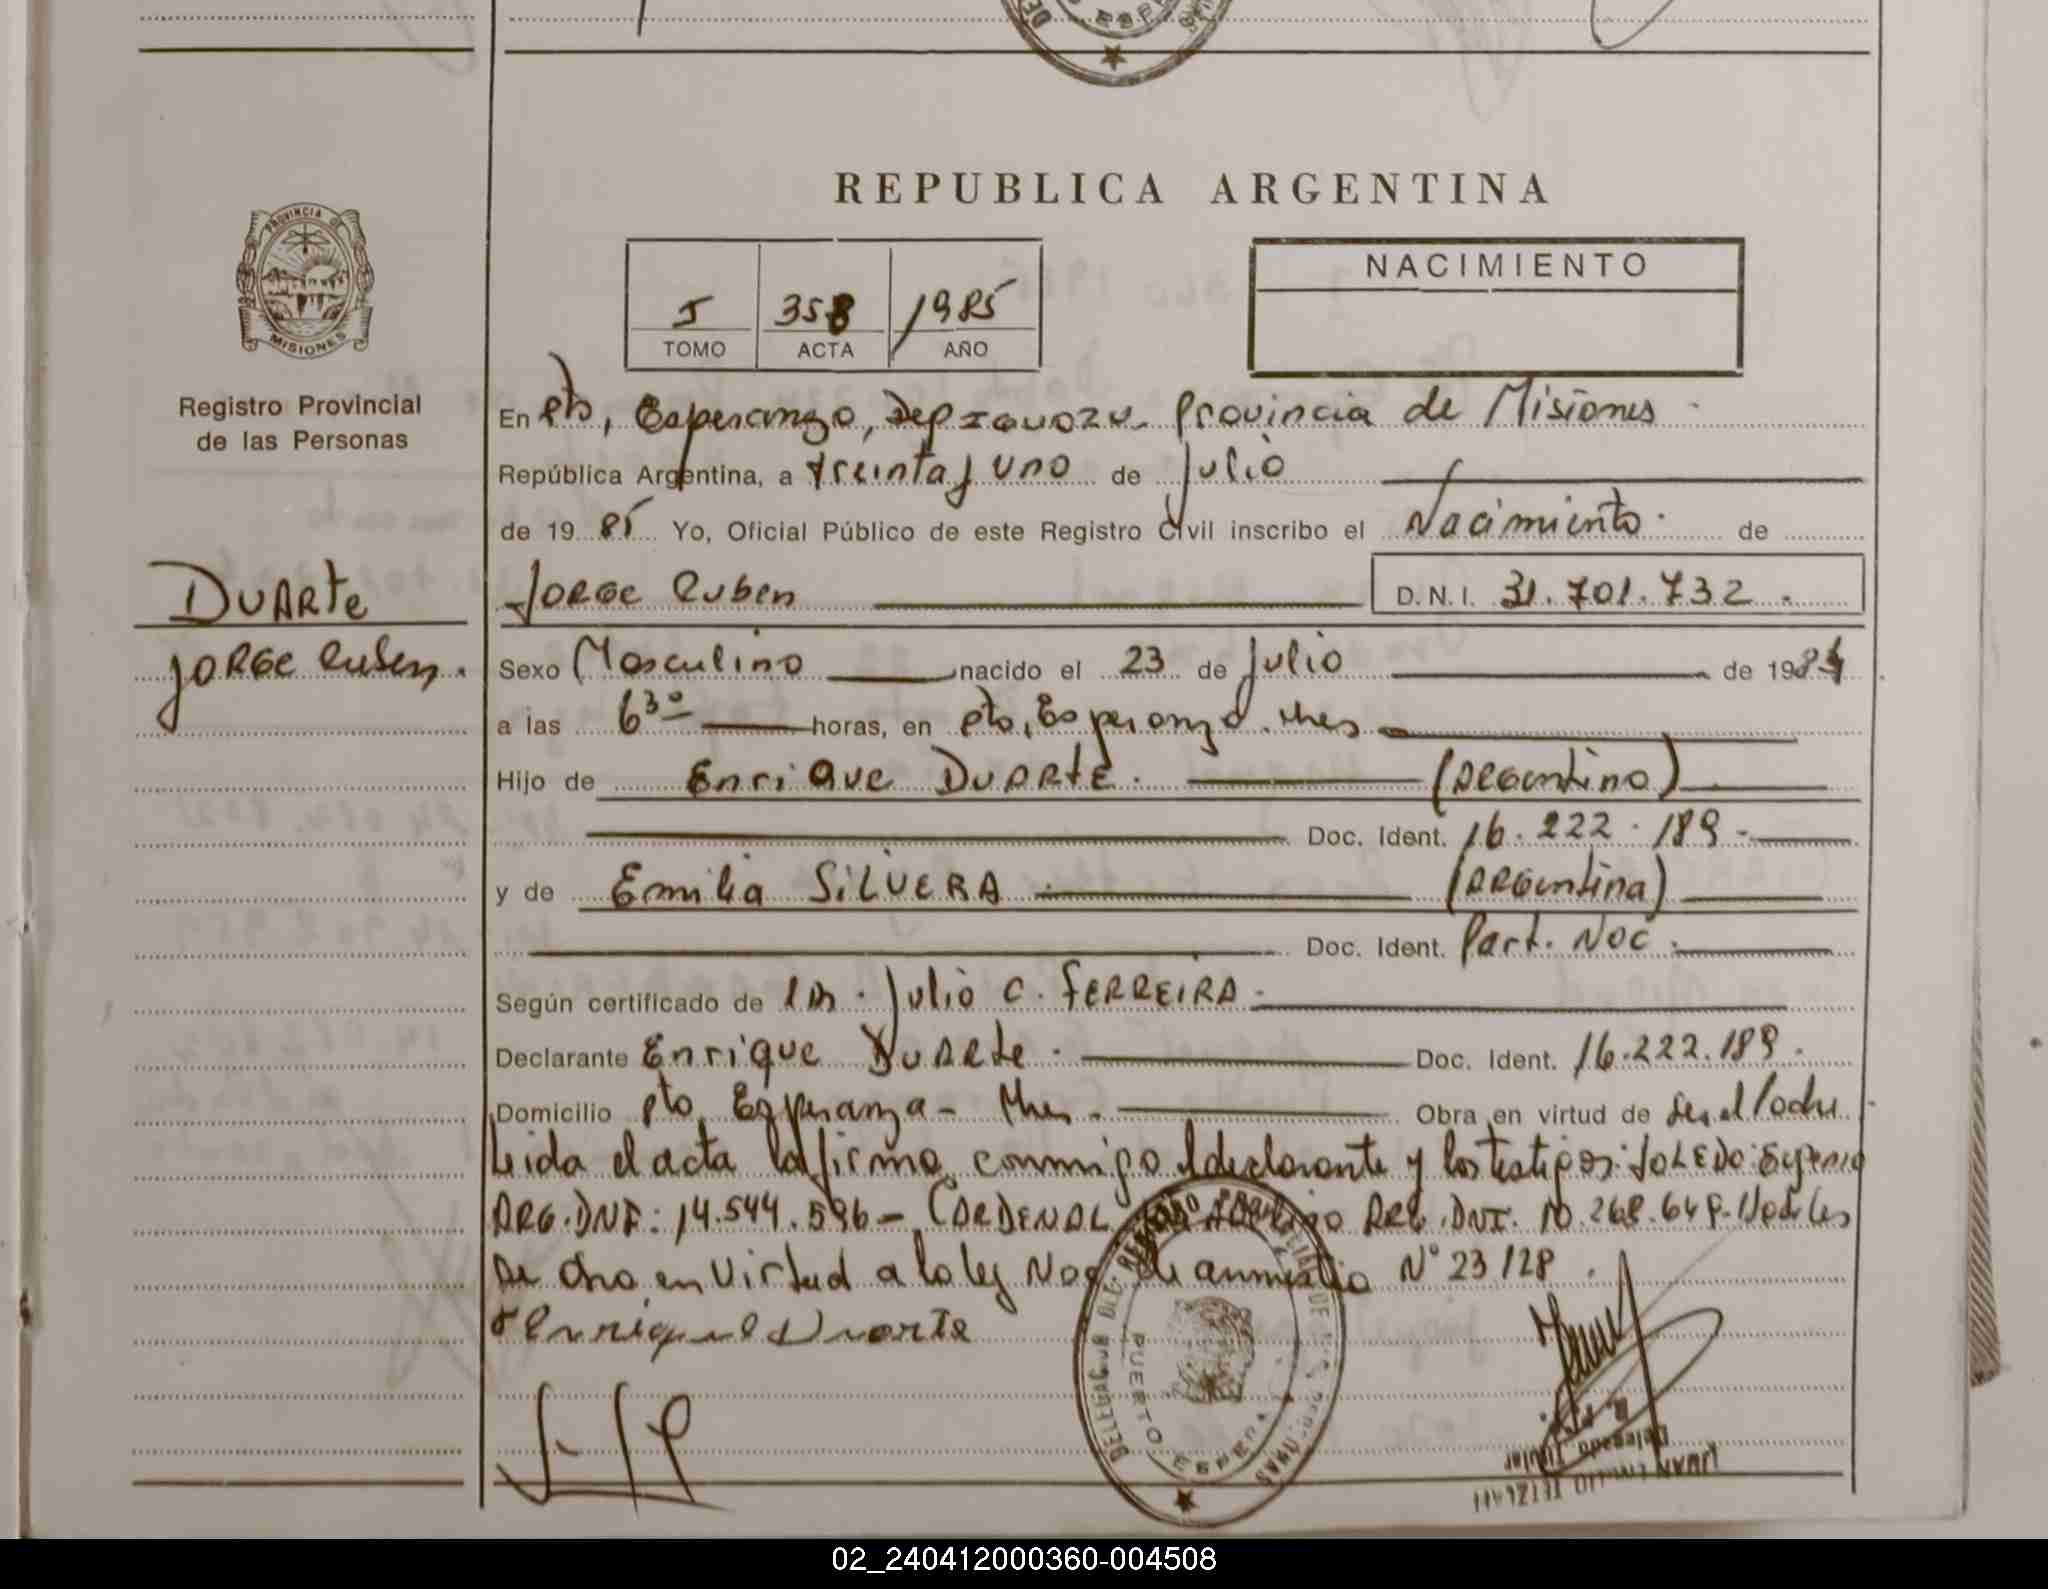 REPUBLICA ARGENTINA
PROVINCIA DE
MISIONES
Registro Provincial
de las Personas
DUARTE
JORGE Ruben.
358 1985
TOMO ACTA AÑO
NACIMIENTO
En Pto, Esperanza, Dep Iguazu - Provincia de Misiones -
República Argentina, a treinta y uno de Julio
de 1985 Yo, Oficial Público de este Registro Civil inscribo el Nacimiento. de
JORGE Ruben D.N.I. 31.701.732.
Sexo Masculino nacido el 23 de Julio de 198
a las 6 30 horas, en Pto, Esperanza. Mnes
Hijo de Enrique DUARTE. (Argentino)
Doc. Ident. 16.222.189.-
y de Emilia SILVERA (Argentina)
Doc. Ident. Part. Nac.
Según certificado de Julio C. FERREIRA.
Declarante Enrique DUARTE. Doc. Ident. 16.222.189.
Domicilio Pto, Esperanza - Mnes. Obra en virtud de
Leida el acta la firma conmigo el declarante y los testigos: TOLEDO: Eugenio
ARG. DNI: 14.544.596 - CARDENAL ARG. DNI. 10.268.649.
en Virtud a la ley Nac. de amnistia N° 23128.
Enrique Duarte
PUERTO ESPERANZA
Delegado Titular
02_240412000360-004508